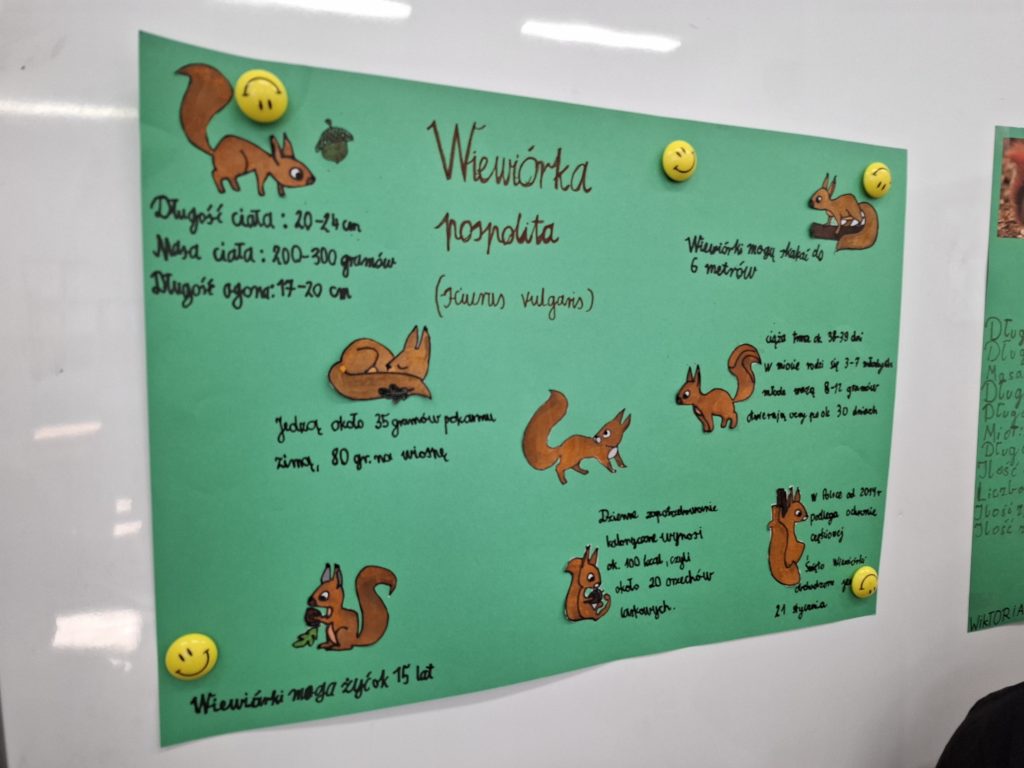 Wiewiórka
pospolita
(Sciurus vulgaris)
Długość ciała: 20-24 cm
Masa ciała: 200-300 gramów
Długość ogona: 17-20 cm
Wiewiórki mogą skakać do
6 metrów
Jedzą około 35 gramów pokarmu
zimą, 80 gr. na wiosnę
ciąża trwa ok. 38-39 dni
w miocie rodzi się 3-7 młodych
młode ważą 8-12 gramów
otwierają oczy po ok 30 dniach
Dzienne zapotrzebowanie
kaloryczne wynosi
ok. 100 kcal, czyli
około 20 orzechów
laskowych.
W Polsce od 2014 r
podlega ochronie
częściowej
Święto Wiewiórki
obchodzone
21 stycznia
Wiewiórki moga żyć ok 15 lat
Masa
Ilość
Liczba
WIKTORIA